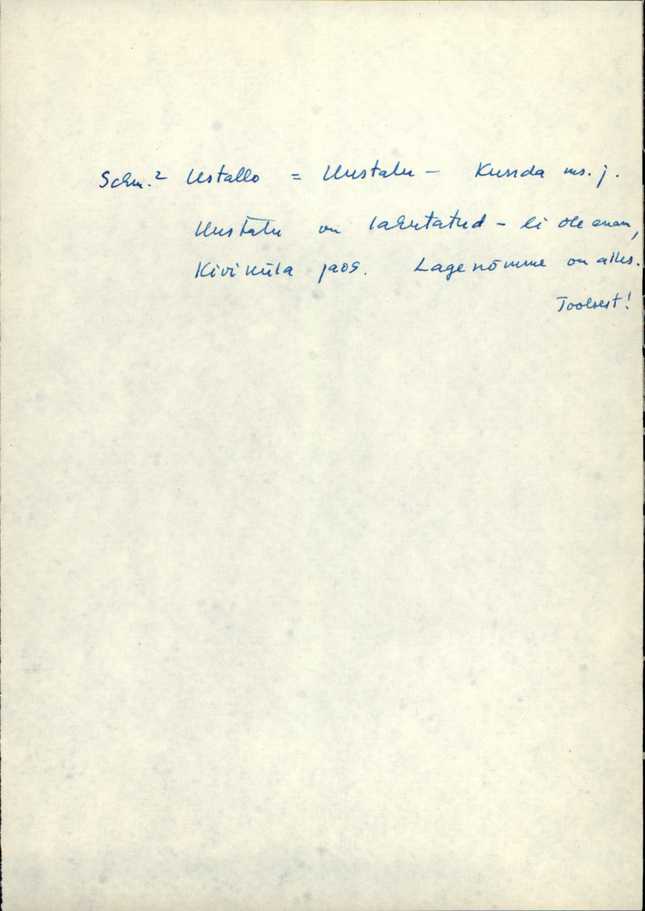 Schm.² Ustallo = Uustalu – Kunda ms. j.
Uustalu on lahutatud – ei ole enam,
Kiviküla jaos. Lagenõmme on alles.
Toolsest!